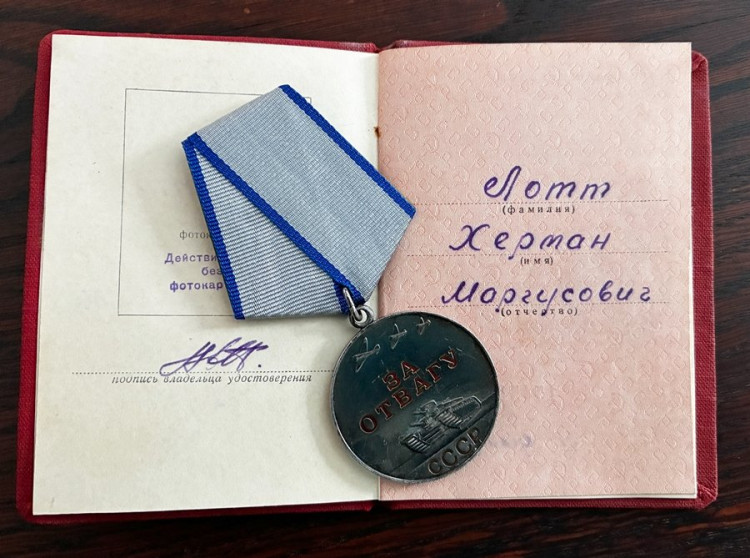 Действи
без
фотокар
подпись владельца удостоверения
ЗА
ОТВАГУ
СССР
Лотт
(фамилия)
Херман
(имя)
Маргусович
(отчество)